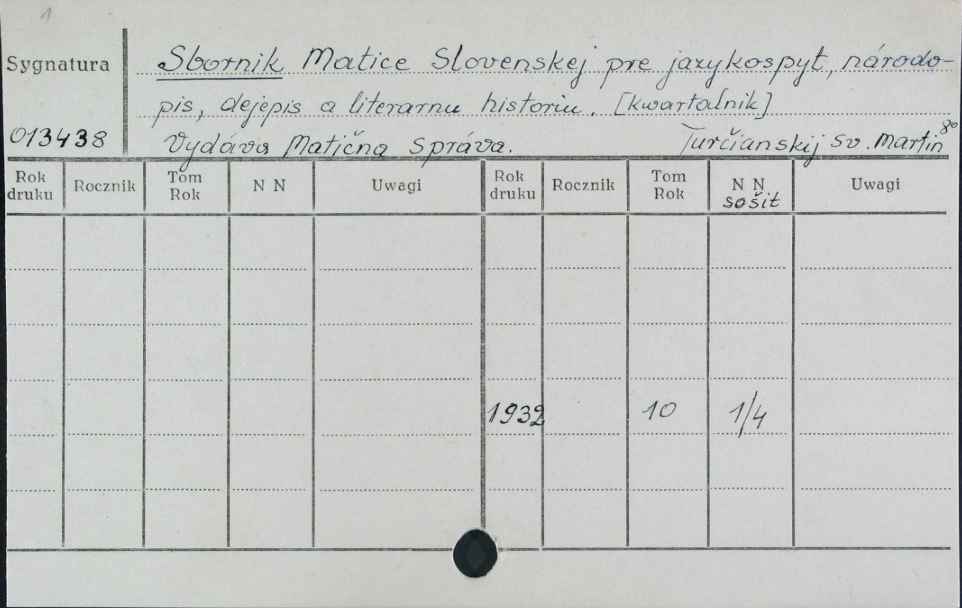 1
Sygnatura
Sborník Matice Slovenskej pre jazykospyt, národo-
pis, dejepis a literarnu historiu. [kwartalnik]
013438
Vydáva Matična správa. Turčianskij Sv. Martin 8°
Rok druku Rocznik Tom Rok N N Uwagi Rok druku Rocznik Tom Rok N N sošit Uwagi
1932 10 1/4